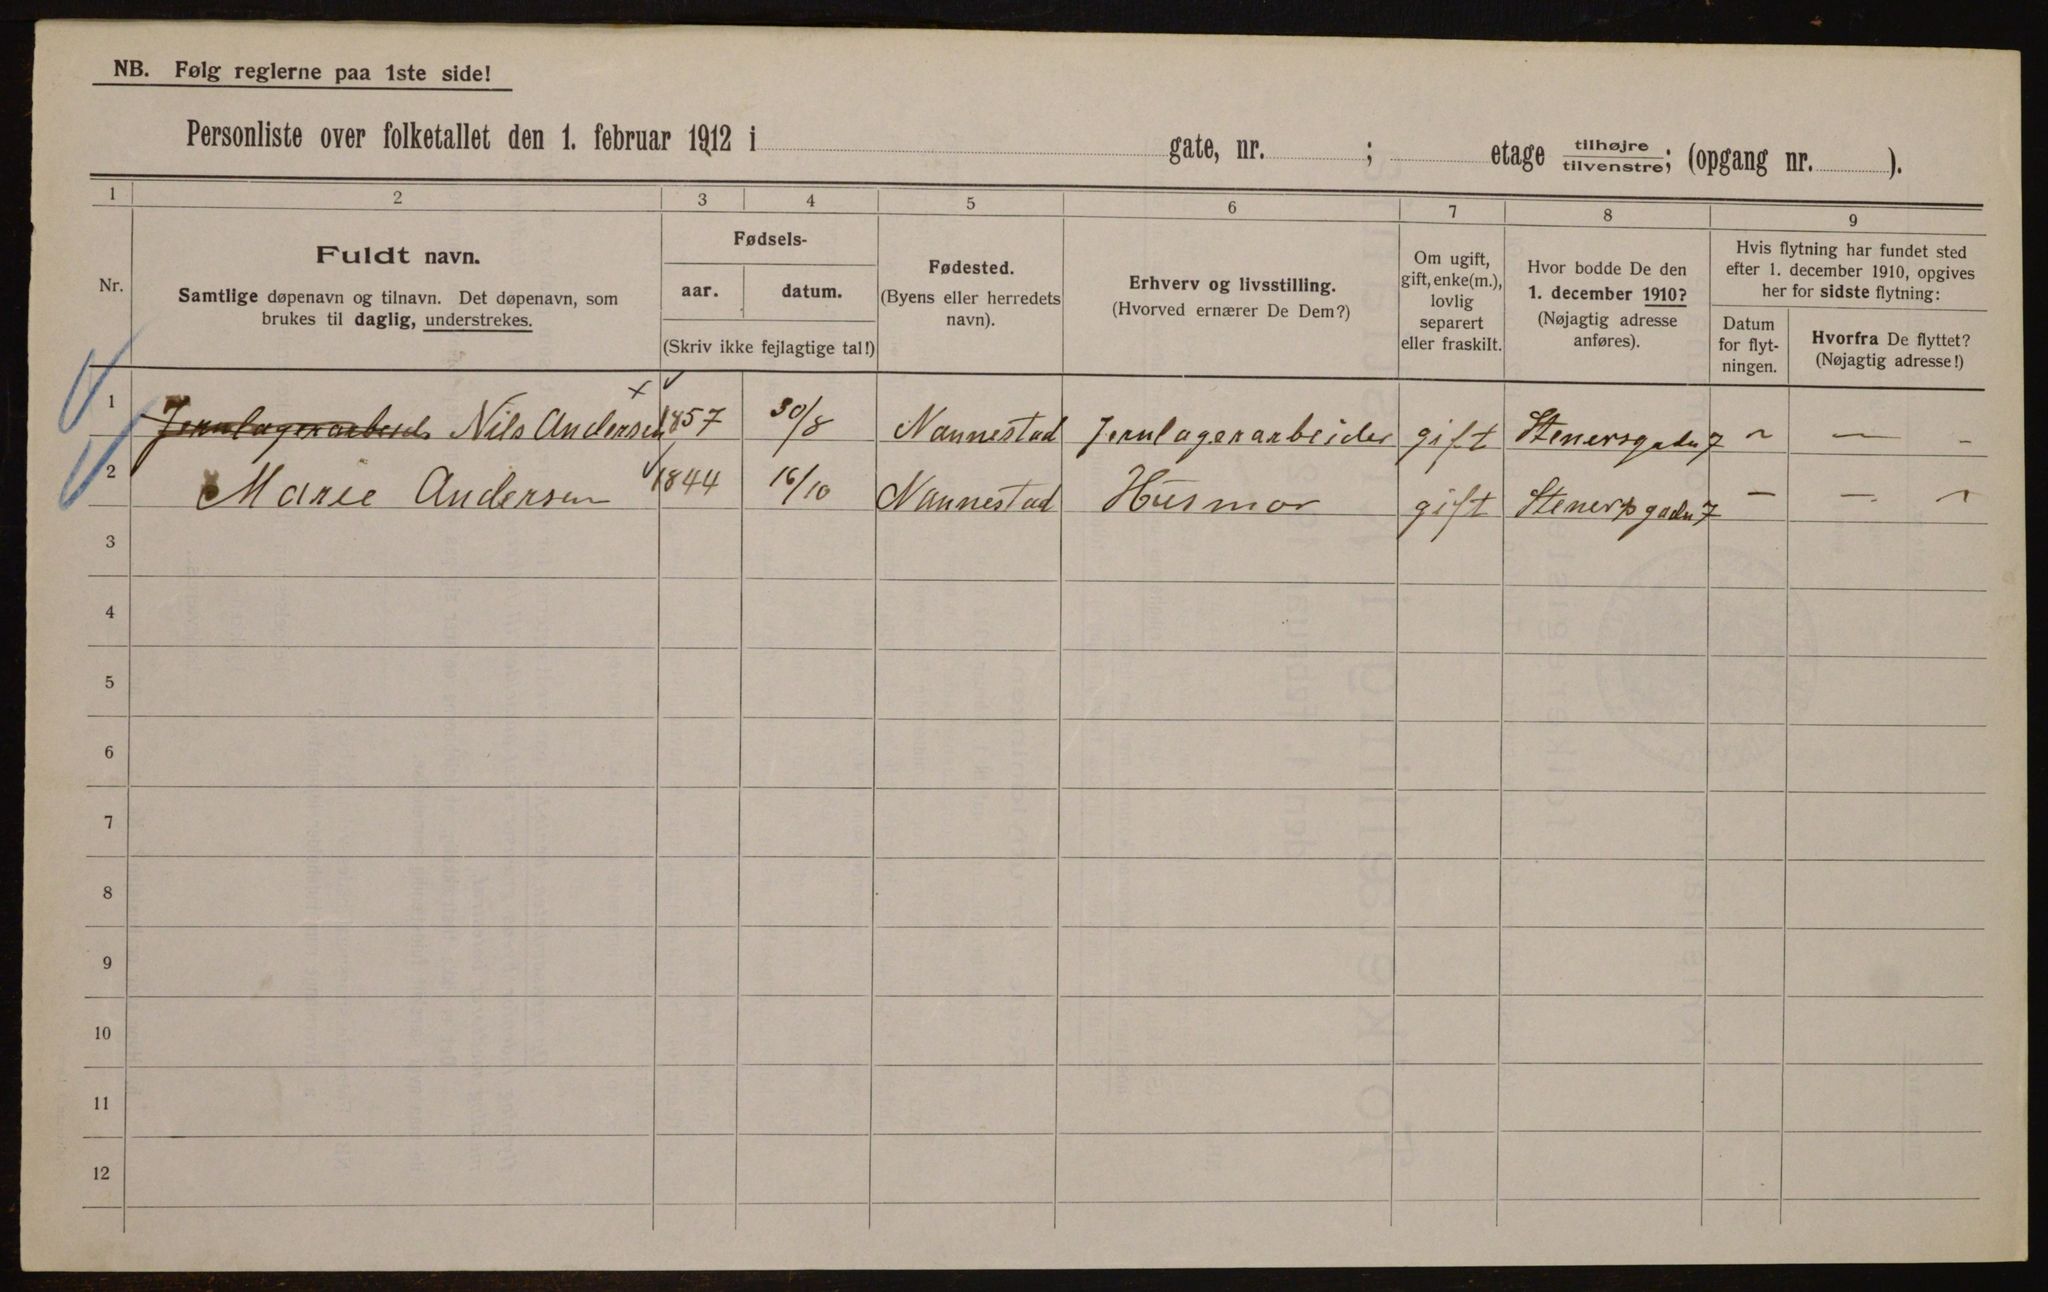 NB. Følg reglerne paa 1ste side!
Personliste over folketallet den 1. februar 1912 i gate, nr. ; etage tilhøjre/tilvenstre; (opgang nr. ).
1 2 3 4 5 6 7 8 9
Nr.
Fuldt navn.
Samtlige døpenavn og tilnavn. Det døpenavn, som
brukes til daglig, understrekes.
Fødsels-
aar. datum.
(Skriv ikke fejlagtige tal!)
Fødested.
(Byens eller herredets
navn).
Erhverv og livsstilling.
(Hvorved ernærer De Dem?)
Om ugift,
gift, enke(m.),
lovlig
separert
eller fraskilt.
Hvor bodde De den
1. december 1910?
(Nøjagtig adresse
anføres).
Hvis flytning har fundet sted
efter 1. december 1910, opgives
her for sidste flytning:
Datum
for flyt-
ningen.
Hvorfra De flyttet?
(Nøjagtig adresse!)
1 Nils Andersen 1857 30/8 Nannestad Jernlagerarbeider gift Stenersgaden 7 - - -
2 Marie Andersen 1844 16/10 Nannestad Husmor gift Stenersgaden 7 - - -
3
4
5
6
7
8
9
10
11
12